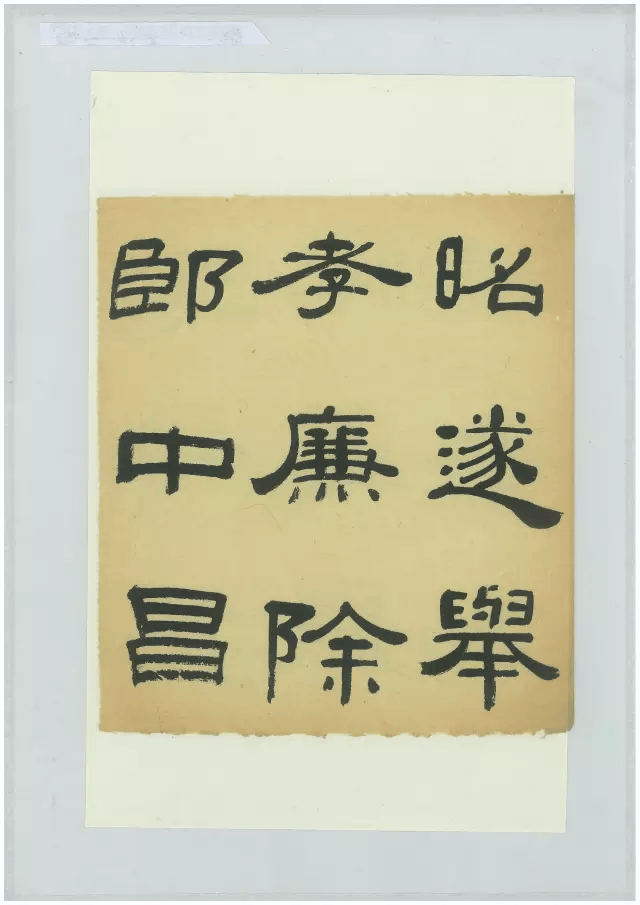 昭遂舉
孝廉除
郎中昌